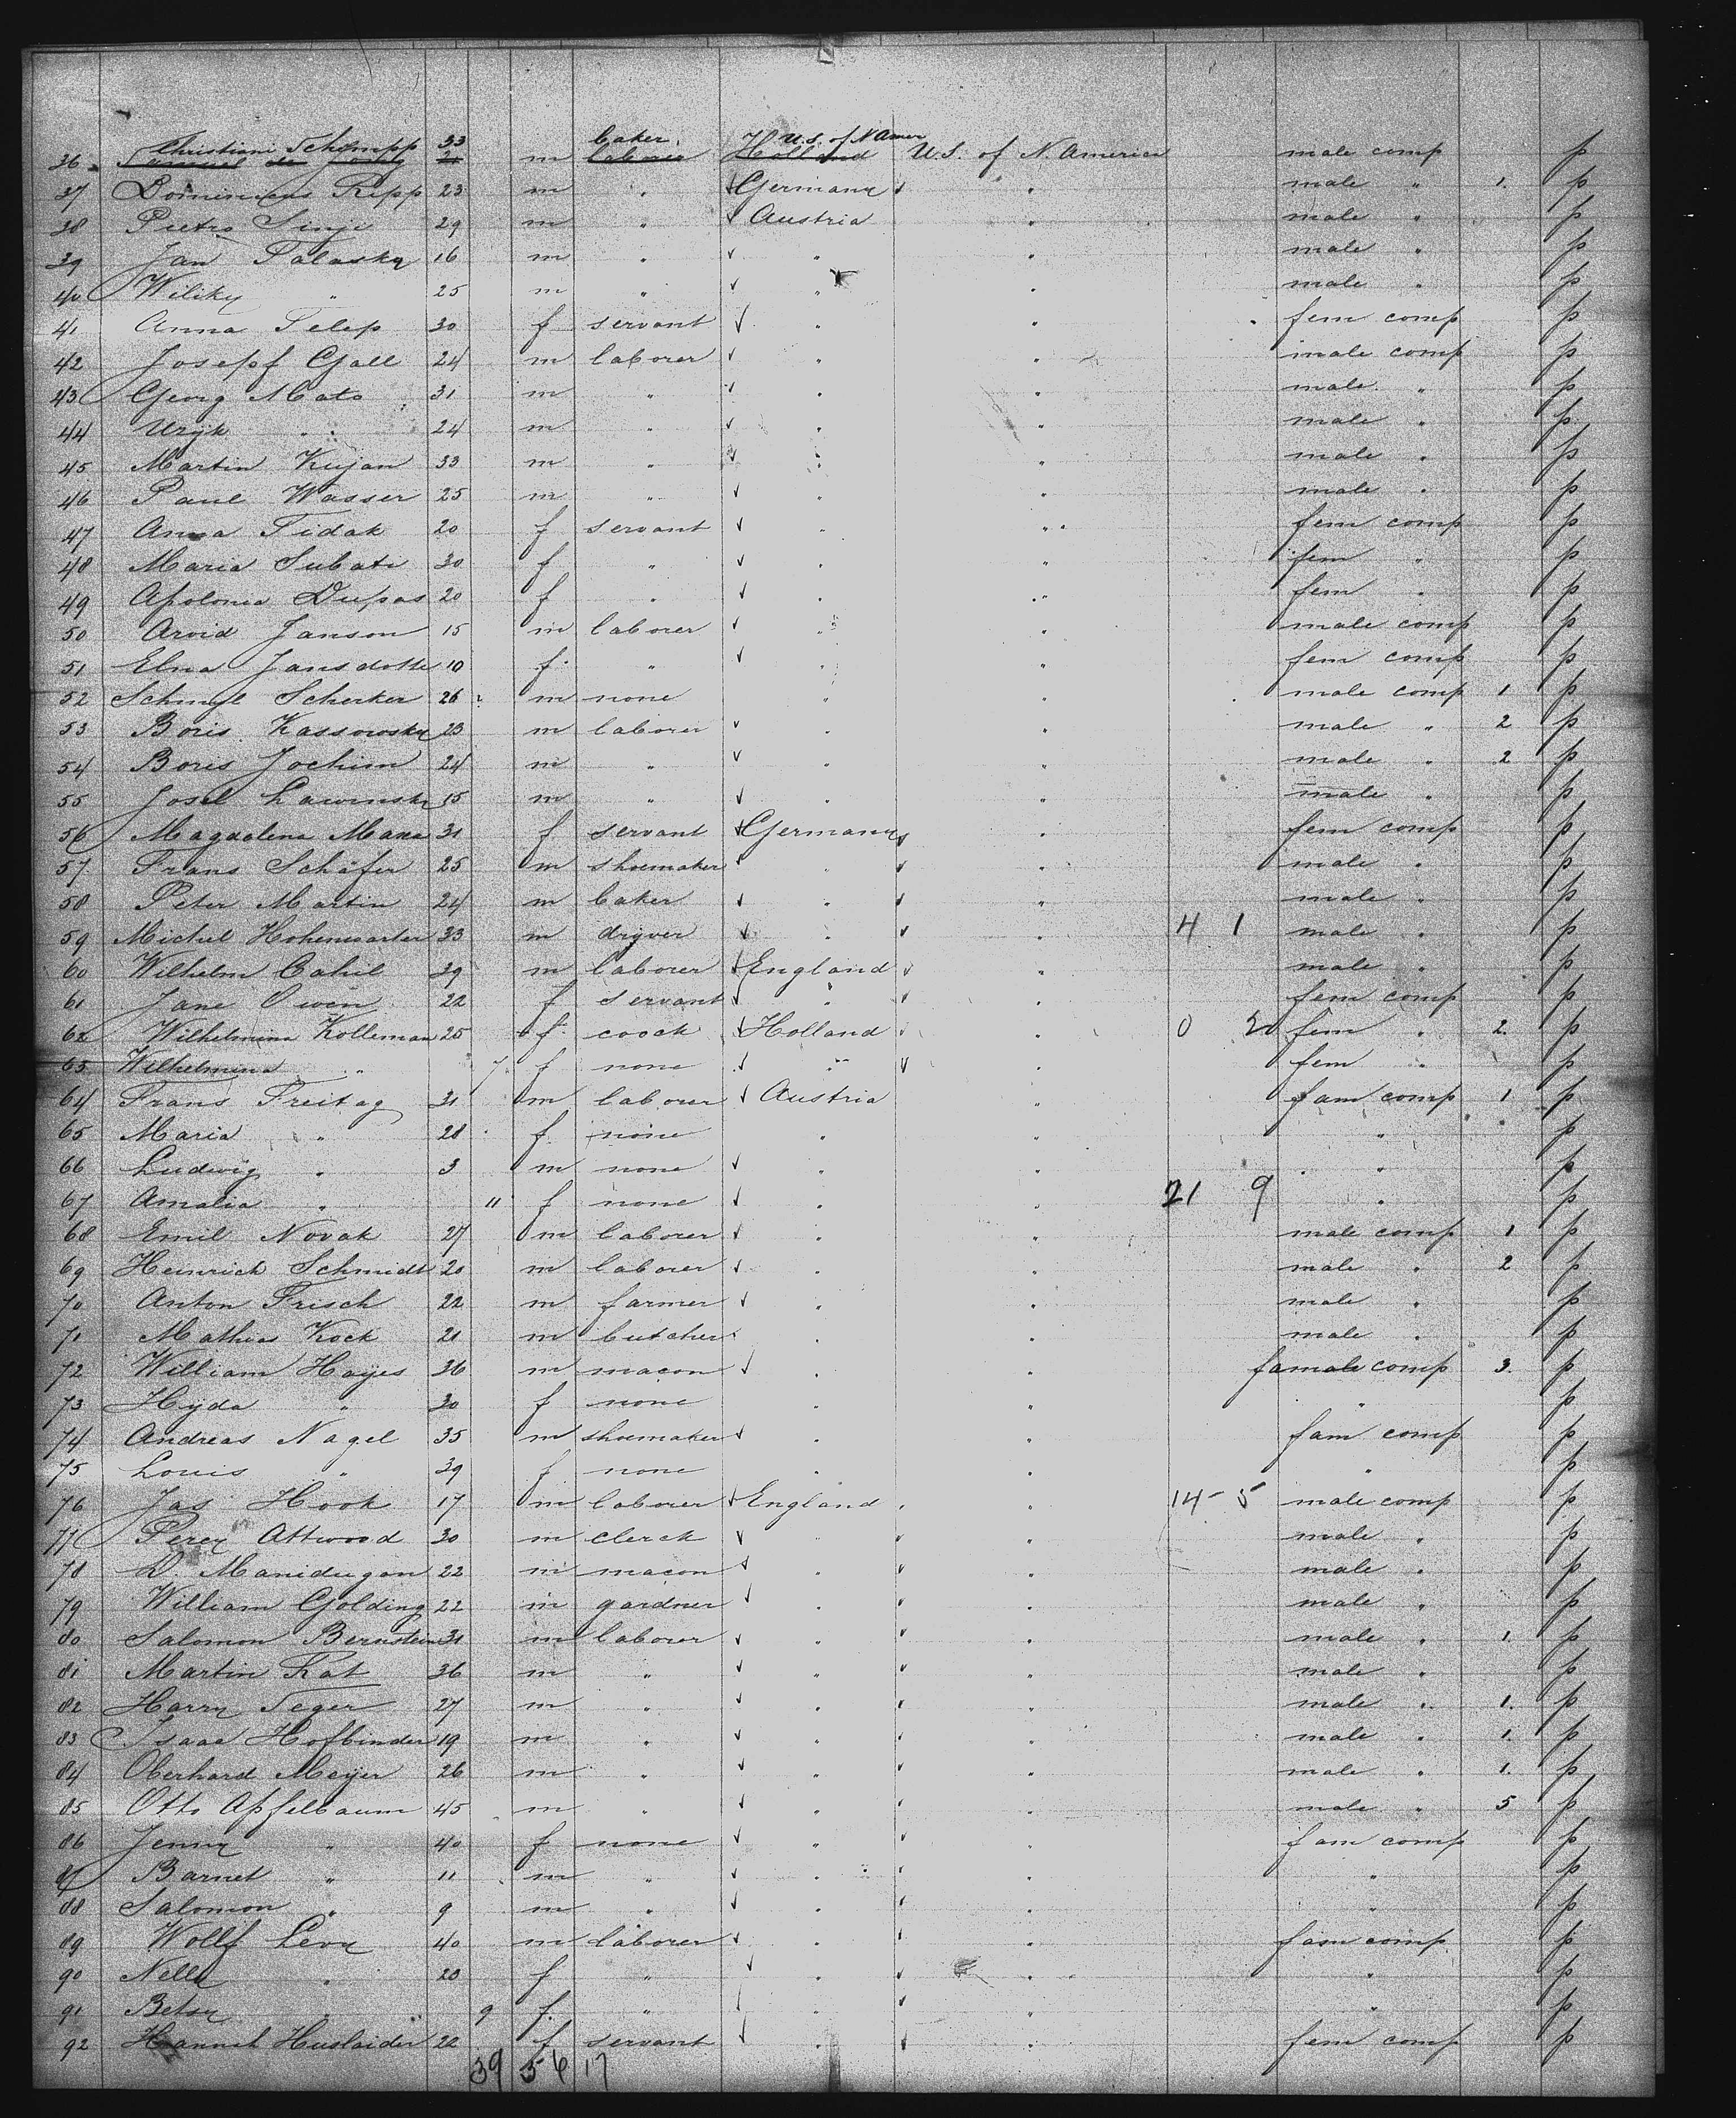 Christiani Schempp 33 baker U.S. of N Amer
36 Samuel de Jong m laborer Holland U.S. of N. America male comp p
37 Dominicus Ripp 23 m " Germany " male " 1. p
38 Pietro Sinji 29 m " Austria " male " p
39 Jan Talasky 16 m " " " male " p
40 Wiliky " 25 m " " " male " p
41 Anna Telep 30 f servant " " fem comp p
42 Josepf Gall 24 m laborer " " male comp p
43 Georg Mato 31 m " " " male " p
44 Urijk " 24 m " " " male " p
45 Martin Kujan 33 m " " " male " p
46 Paul Wasser 25 m " " " male " p
47 Anna Tidak 20 f servant " " fem comp p
48 Maria Subati 30 f " " " fem " p
49 Apolonia Dupas 20 f " " " fem " p
50 Arvid Janson 15 m laborer " " male comp p
51 Elna Jansdotte 10 f " " " fem comp p
52 Schmyl Scherker 26 m none " " male comp 1 p
53 Boris Kassowsky 23 m laborer " " male " 2 p
54 Boris Jochim 24 m " " " male " 2 p
55 Josel Lawinsky 15 m " " " male " p
56 Magdalena Mana 31 f servant Germany " fem comp p
57 Frans Schäfer 25 m shoemaker " " male " p
58 Peter Martin 24 m baker " " male " p
59 Michel Hohenwarter 33 m drijver " " 4 1 male " p
60 Wilhelm Cahil 39 m laborer England " male " p
61 Jane Owen 22 f servant " " fem comp p
62 Wilhelmina Kolleman 25 f coock Holland " 0 2 fem " 2. p
63 Wilhelmina " 7 f none " " fem " p
64 Frans Freitag 31 m laborer Austria " fam comp 1 p
65 Maria " 28 f none " " " p
66 Ludwig " 3 m none " " " p
67 Amalia " 11 f none " " 21 9 " p
68 Emil Novak 27 m laborer " " male comp 1 p
69 Heinrich Schmidt 20 m laborer " " male " 2 p
70 Anton Frisch 22 m farmer " " male " p
71 Mathias Kock 21 m butcher " " male " p
72 William Hayes 36 m macon " " famale comp 3. p
73 Hyda " 30 f none " " " p
74 Andreas Nagel 35 m shoemaker " " fam comp p
75 Louis " 39 f none " " " p
76 Jas Hook 17 m laborer England " 14 - 5 male comp p
77 Percy Attwood 30 m clerck " " male " p
78 D. Manidugan 22 m macon " " male " p
79 William Golding 22 m gardner " " male " p
80 Salomon Bernstein 31 m laborer " " male " 1. p
81 Martin Kat 36 m " " " male " p
82 Harry Teger 27 m " " " male " 1. p
83 Isaac Hofbinder 19 m " " " male " 1. p
84 Oberhard Meyer 26 m " " " male " 1. p
85 Otto Apfelbaum 45 m " " " male " 5 p
86 Jenny " 40 f none " " fam comp p
87 Barnet " 11 m " " " " p
88 Salomon " 9 m " " " " p
89 Wollf Levy 40 m laborer " " fam comp p
90 Nelly " 20 f " " " " p
91 Betsy " 9 f. " " " " p
92 Hannah Huslaider 22 f servant " " fem comp p
39 56 17